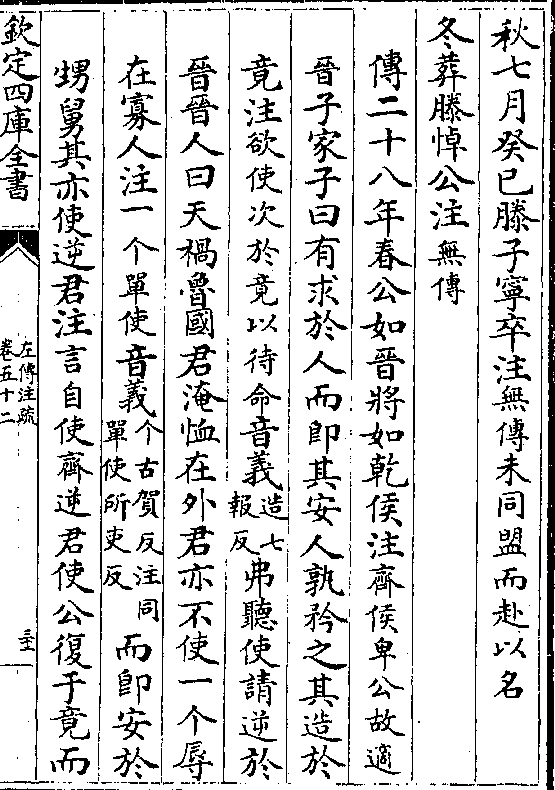 秋七月癸巳滕子寧卒注無傳未同盟而赴以名
冬葬滕悼公注無傳
傳二十八年春公如晉將如乾侯注齊侯卑公故適
晉子家子曰有求於人而即其安人孰矜之其造於
竟注欲使次於竟以待命音義造七報反弗聽使請逆於
晉晉人曰天禍魯國君淹恤在外君亦不使一个辱
在寡人注一个單使音義个古賀反注同單使所吏反而即安於
甥舅其亦使逆君注言自使齊逆君使公復于竟而
欽定四庫全書
左傳注疏
卷五十二